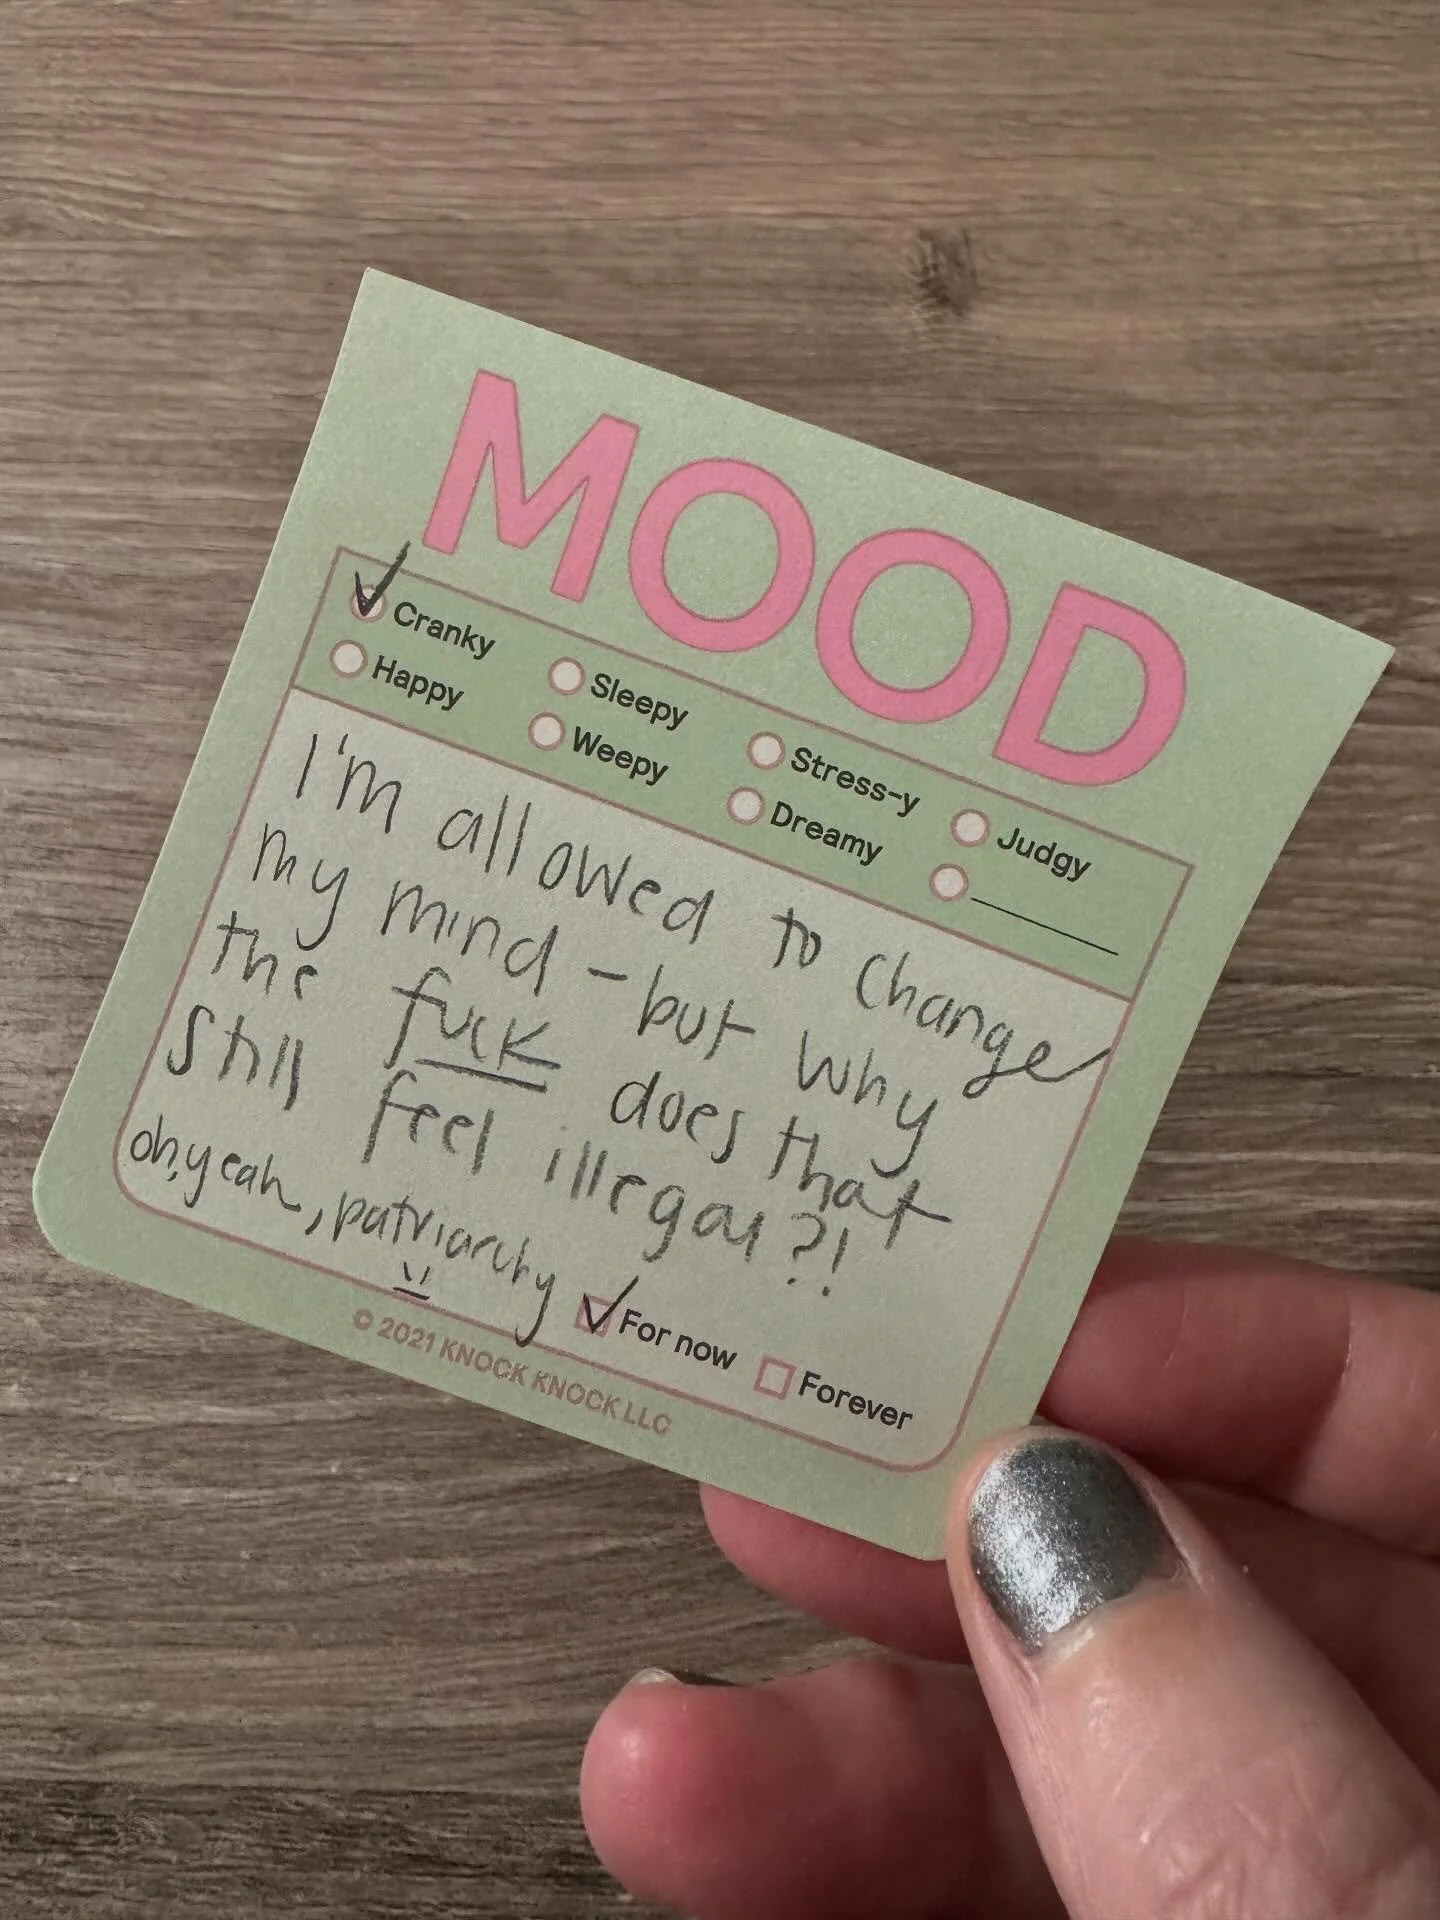 MOOD
Cranky Sleepy Stress-y Judgy
Happy Weepy Dreamy
I'm allowed to change
my mind - but why
the fuck does that
still feel illegal?!
oh, yeah, patriarchy
For now Forever
© 2021 KNOCK KNOCK LLC